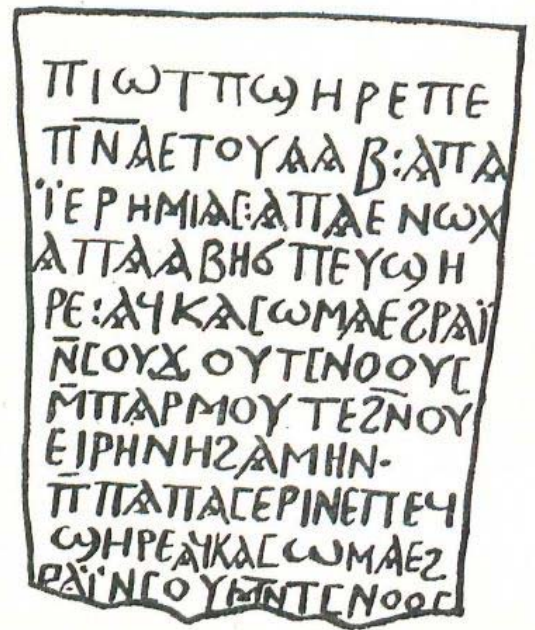 ⲠⲒⲰⲦⲠϢⲎⲢⲈⲠⲈ
ⲠⲚ̅Ⲁ̅ⲈⲦⲞⲨⲀⲀⲂ:ⲀⲠⲀ
Ⲓ̈ⲈⲢⲎⲘⲒⲀⲤ:ⲀⲠⲀⲈⲚⲰⲬ
ⲀⲠⲀⲀⲂⲎϬⲠⲈⲨϢⲎ
ⲢⲈ:ⲀϤⲔⲀⲤⲰⲘⲀⲈϨⲢⲀⲒ̈
Ⲛ̅ⲤⲞⲨϪⲞⲨⲦⲤⲚⲞⲞⲨⲤ
Ⲙ̅ⲠⲀⲢⲘⲞⲨⲦⲈϨⲚ̅ⲞⲨ
ⲈⲒⲢⲎⲚⲎϨⲀⲘⲎⲚ·
Ⲡ̅ⲠⲀⲠⲀⲤⲈⲢⲒⲚⲈⲠⲈϤ
ϢⲎⲢⲈⲀϤⲔⲀⲤⲰⲘⲀⲈϨ
ⲢⲀⲒ̈ⲚⲤⲞⲨⲘⲚ̅ⲦⲤⲚⲞⲞⲤ